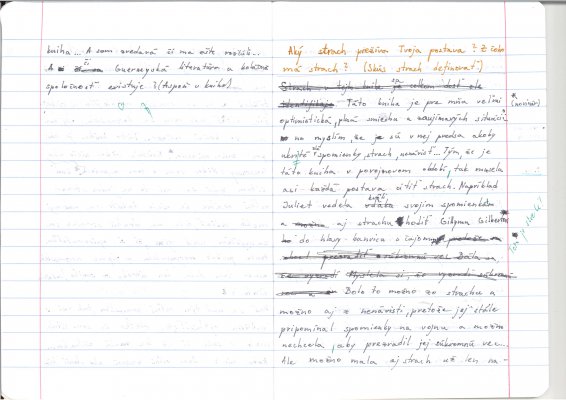 kniha... A som zvedavá či ma ešte rozčúli...
A či Guernseyská literatúra a koláčová
spoločnosť existuje? (Aspoň v knihe)
Aký strach prežíva Tvoja postava? Z čoho
má strach? (Skús strach definovať)
Táto kniha je pre mňa veľmi
optimistická, plná smiechu a zaujímavých situácií
no myslím, že sú v nej predsa akoby
ukryté spomienky, strach, nenávisť... Tým, že je
táto kniha v povojnovom období, tak musela
asi každá postava cítiť strach. Napríklad
Juliet vedela kvôli svojim spomienkam
a aj strachu hodiť Gilberta
do hlavy kanvicu s čajom
Bolo to možno zo strachu a
možno aj z nenávisti, pretože jej stále
pripomínal spomienky na vojnu a možno
nechcela, aby prezradil jej súkromnú vec...
Ale možno mala aj strach už len na-